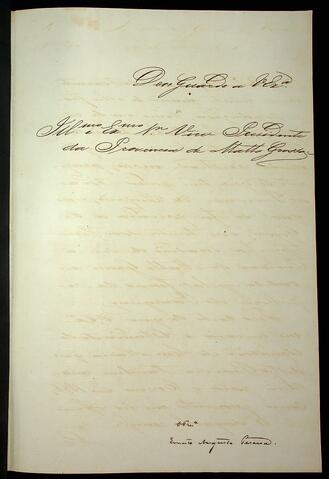 Deos Guarde a V. Exª
Illmo e Exmo Snr Vice Presidente
da Provincia de Matto Grosso
Augusto Pereira.